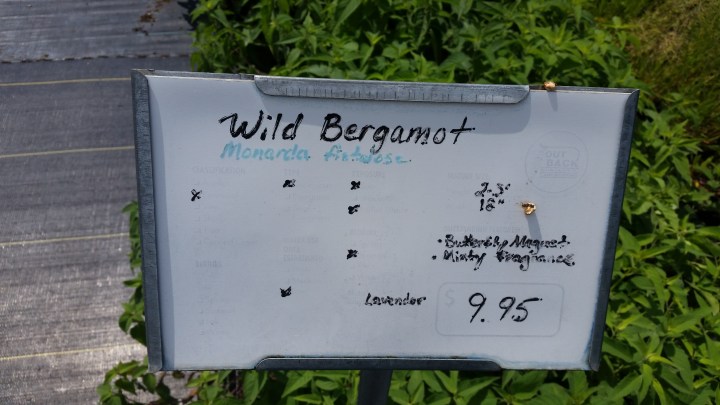 Wild Bergamot
Monarda fistulosa
x x x 2-3'
x 18"
• Butterfly Magnet
x • Minty Fragrance
x Lavender $ 9.95